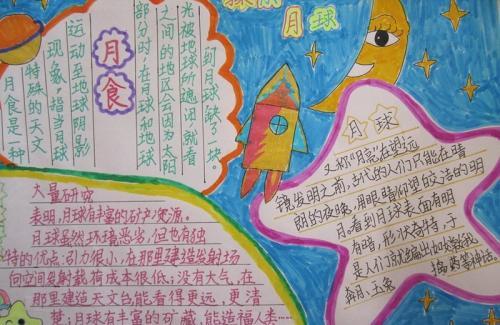 月球
月食
月食是一种
特殊的天文
现象,指当月球
运动至地球阴影
部分时,在月球和地球
之间的地区会因为太阳
光被地球所遮闭,就看
到月球缺了一块。
大量研究
表明,月球有丰富的矿产资源。
月球虽然环境恶劣,但也有独
特的优点:引力很小,在那里建造发射场
向空间发射载荷成本很低;没有大气,在
那里建造天文台能看得更远,更清
楚;月球有丰富的矿藏,能造福人类……
月球
又称“月亮”在望远
镜发明之前,古代的人们只能在晴
朗的夜晚,用眼睛仰望皎洁的明
月。看到月球表面有明
有暗,形状奇特,于
是人们就编出如嫦娥
奔月、玉兔
捣药等神话。